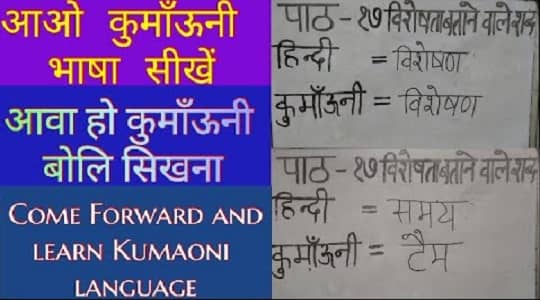 आओ कुमाँऊनी
भाषा सीखें
आवा हो कुमाँऊनी
बोलि सिखना
COME FORWARD AND
LEARN KUMAONI
LANGUAGE
पाठ - १७ विशेषता बताने वाले शब्द
हिन्दी = विशेषण
कुमाँऊनी = विशेषण
पाठ - १७ विशेषता बताने वाले शब्द
हिन्दी = समय
कुमाँऊनी = टैम